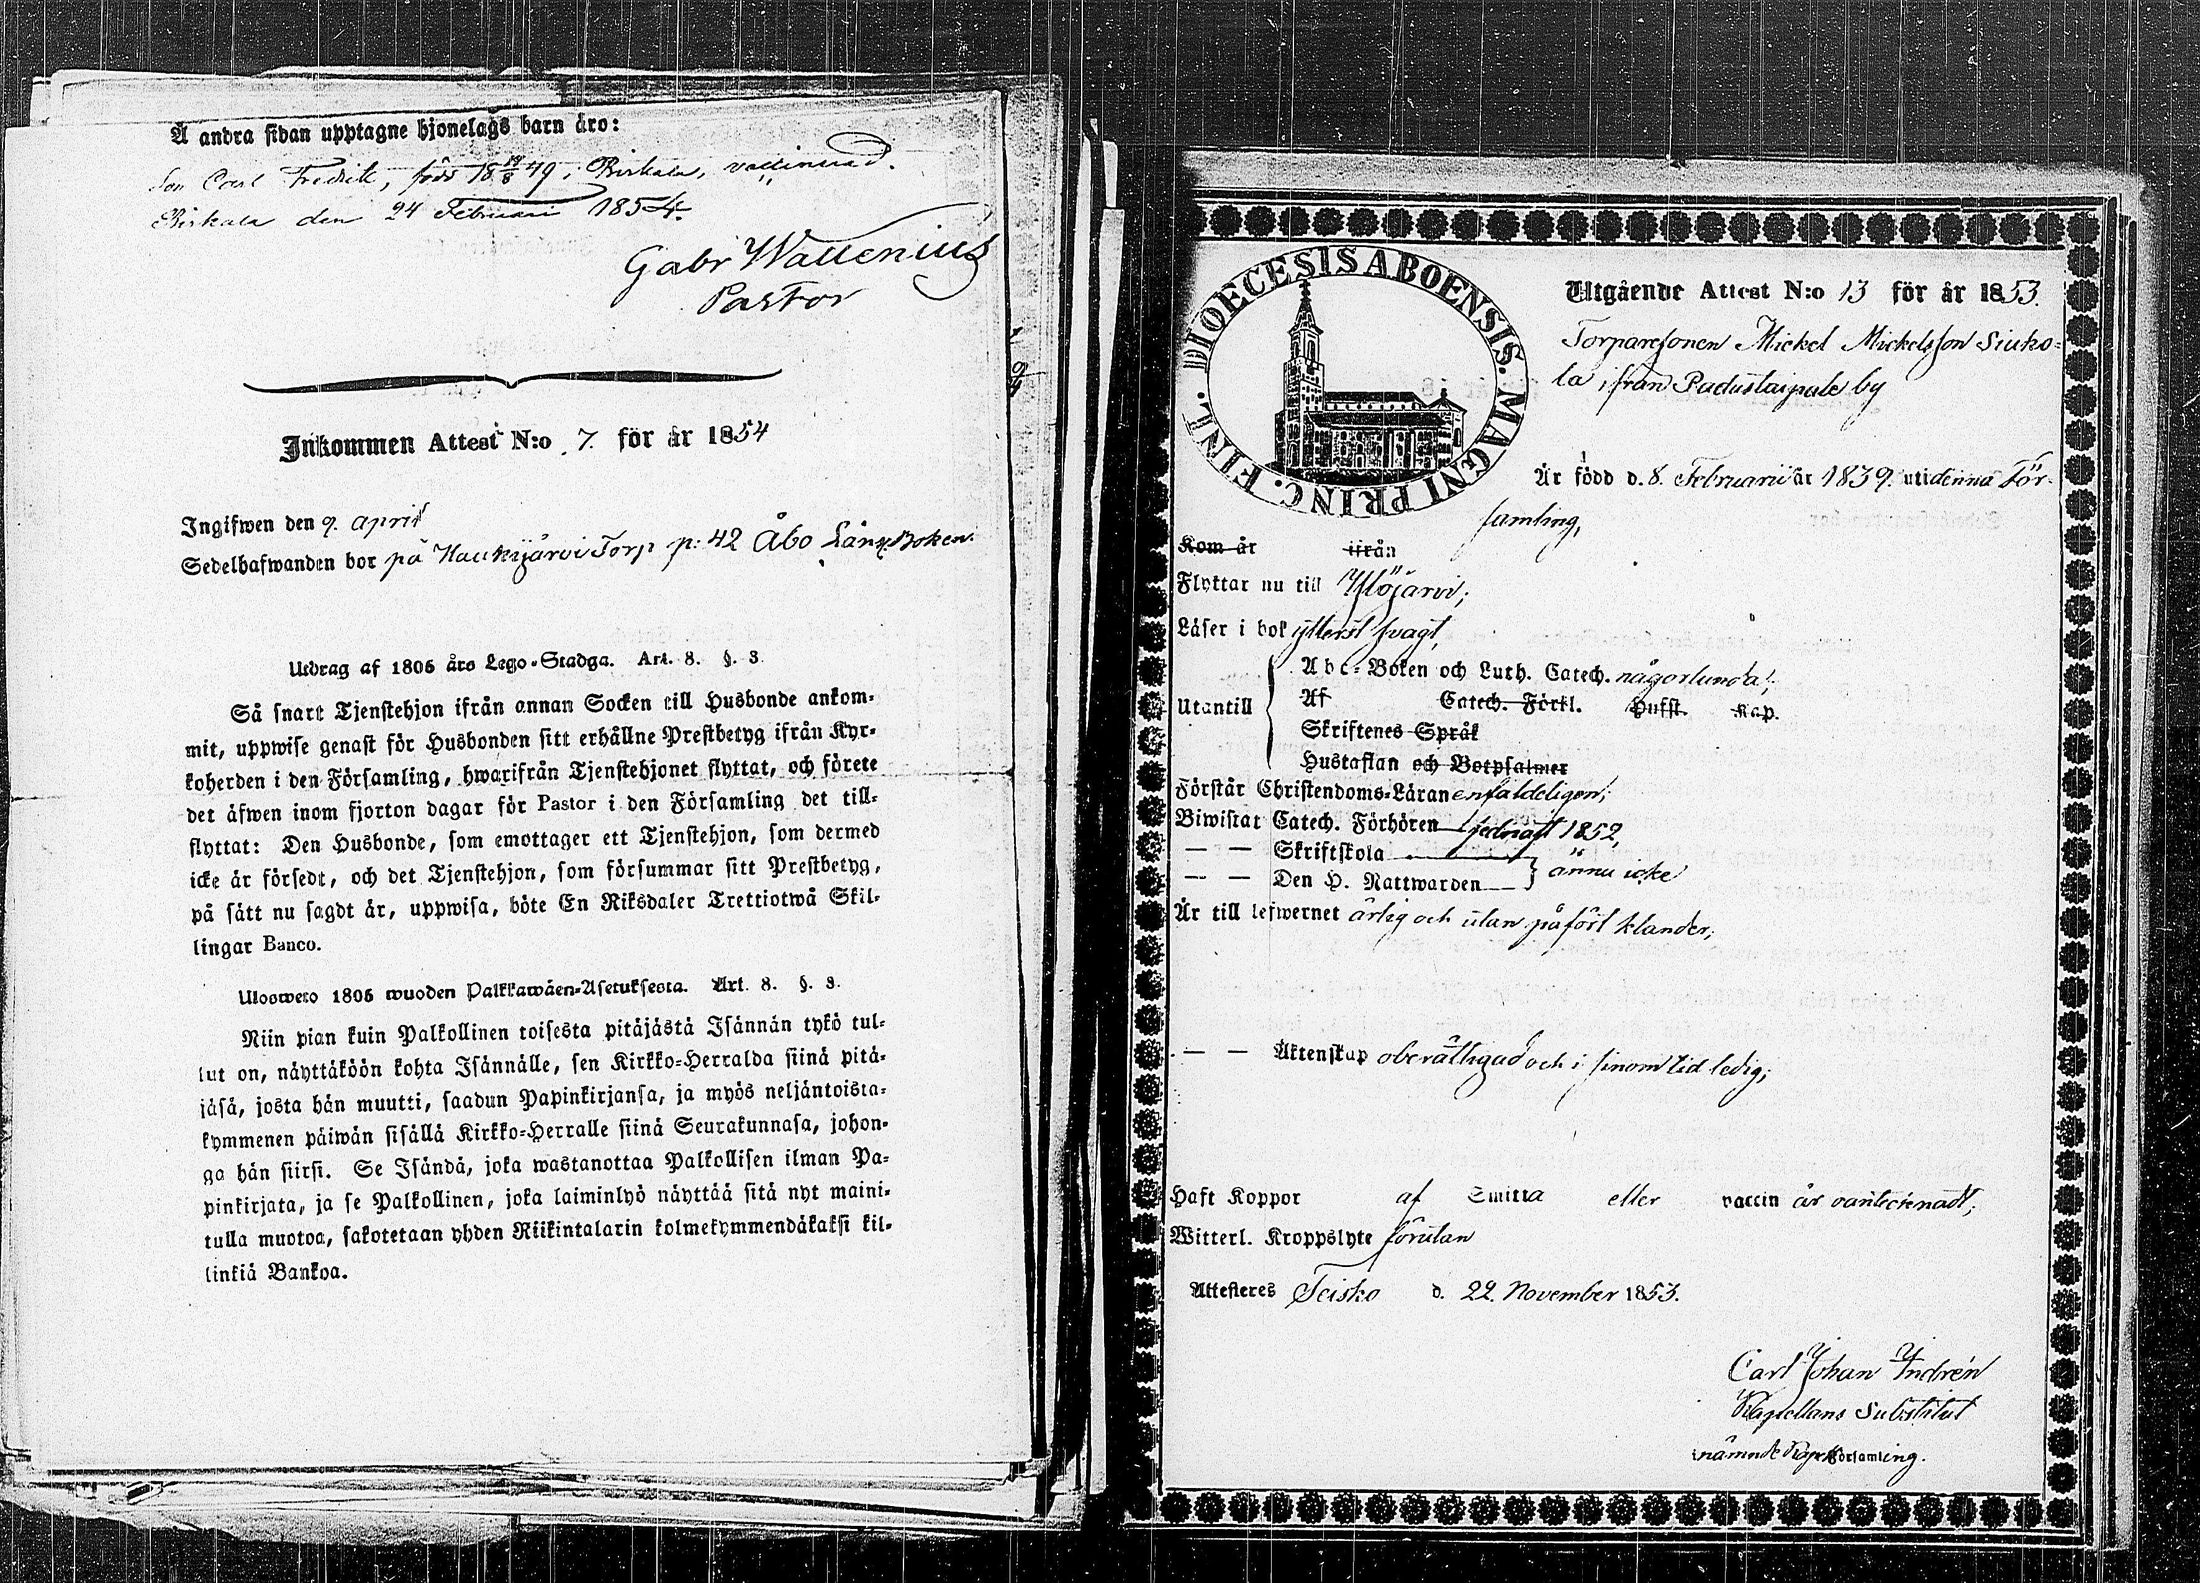 Å andra sidan upptagne hjonelags barn äro:
Son Carl Fredrik, född 18 19/8 49, i Birkala, vaccinerad.
Birkala den 24 Februari 1854.
Gabr Wallenius
Pastor
Inkommen Attest N:o 7. för år 1854
Ingifwen den 9. april
Sedelhafwanden bor på Haukijärvi Torp p: 42 Åbo Läns Boken.
Utdrag af 1805 års Lego-Stadga. Art. 8. §. 3.
Så snart Tjenstehjon ifrån annan Socken till Husbonde ankom-
mit, uppwise genast för Husbonden sitt erhållne Prestbetyg ifrån Kyr-
koherden i den Församling, hwarifrån Tjenstehjonet flyttat, och förete
det äfwen inom fjorton dagar för Pastor i den Församling det till-
flyttat: Den Husbonde, som emottager ett Tjenstehjon, som dermed
icke är försedt, och det Tjenstehjon, som försummar sitt Prestbetyg,
på sätt nu sagdt är, uppwisa, böte En Riksdaler Trettiotwå Skil-
lingar Banco.
Uloswero 1805 wuoden Palkkawäen-Asetuksesta. Art. 8. §. 3.
Niin pian kuin Palkollinen toisesta pitäjästä Isännän tykö tul-
lut on, näyttäköön kohta Isännälle, sen Kirkko-Herralda siinä pitä-
jäsä, josta hän muutti, saadun Papinkirjansa, ja myös neljäntoista-
kymmenen päiwän sisällä Kirkko-Herralle siinä Seurakunnasa, johon-
ga hän siirsi. Se Isändä, joka wastanottaa Palkollisen ilman Pa-
pinkirjata, ja se Palkollinen, joka laiminlyö näyttää sitä nyt maini-
tulla muotoa, sakotetaan yhden Riikintalarin kolmekymmendäkaksi kil-
linkiä Bankoa.
DIOECESIS ABOENSIS. MAGNI PRINC. FINL.
Utgående Attest N:o 13 för år 1853.
Torparesonen Mickel Mickelsson Siuko-
la, ifrån Padustaipale by
Är född d. 8. Februarii år 1839. uti denna För-
samling,
Kom år ifrån
Flyttar nu till Ylöjärvi;
Läser i bok ytterst svagt,
Utantill
Abc-Boken och Luth. Catech. någorlunda;
Af Catech. Förkl. Hufst. Kap.
Skriftenes Språk
Hustaflan och Botpsalmer
Förstår Christendoms-Läran enfaldeligen;
Biwistat Catech. Förhören sednast 1852,
— — Skriftskola
— — Den H. Nattwarden } ännu icke
Är till lefwernet ärlig och utan påfört klander;
— — Äktenskap oberättigad och i sinom tid ledig;
Haft Koppor af Smitta eller vaccin är oantecknadt;
Witterl. Kroppslyte förutan
Attesteres Teisko d. 22. November 1853.
Carl Johan Indrén
Kapellans Substitut
i nämnde Kapellförsamling.